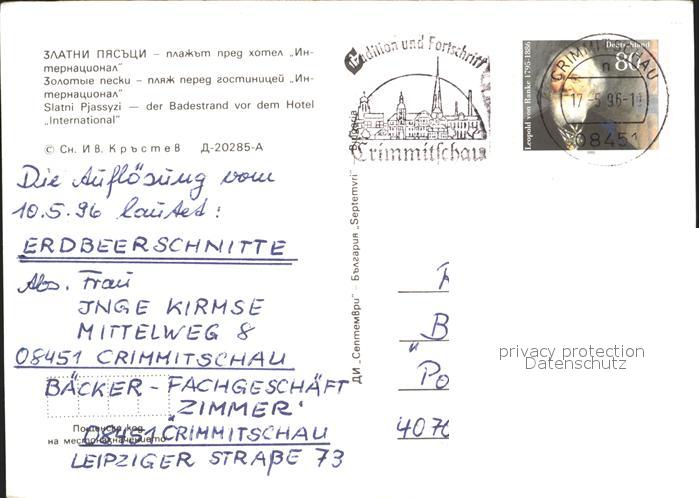 ЗЛАТНИ ПЯСЪЦИ – плажът пред хотел „Ин-
тернационал"
Золотые пески – пляж перед гостиницей „Ин-
тернационал"
Slatni Pjassyzi — der Badestrand vor dem Hotel
„International"
© Сн. Ив. Кръстев Д-20285-А
Die Auflösung vom
10.5.96 lautet:
ERDBEERSCHNITTE
Abs. Frau
INGE KIRMSE
MITTELWEG 8
08451 CRIMMITSCHAU
BÄCKER-FACHGESCHÄFT
„ZIMMER'
Пощенски код
на местоназначението
08451 CRIMMITSCHAU
LEIPZIGER STRAßE 73
ДИ „Септември" – България „Septemvri"
Tradition und Fortschritt
Crimmitschau
Leopold von Ranke 1795-1886
Deutschland
80
CRIMMITSCHAU
n
17.-5.96-1
08451
B
"
Po
407
privacy protection
Datenschutz